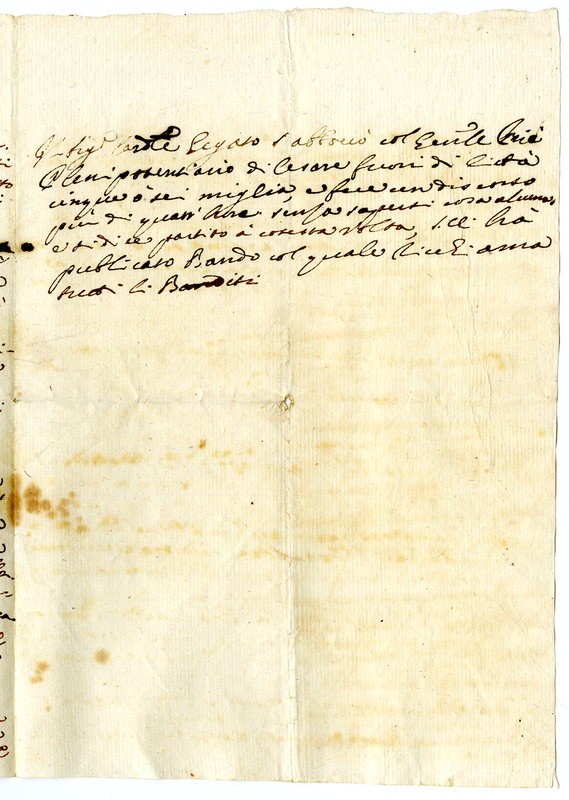 Il Sig.r Card.le Legato s'abboccò col Gen̄le
Plenipotenziario di Cesare fuori di Città
cinque ò sei miglia, e fece un discorso
più di quatr'hore senza sapersi cosa alcuna,
e si dice partito à cotesta volta, S. E. hà
publicato Bando col quale richiama
tutti li Banditi